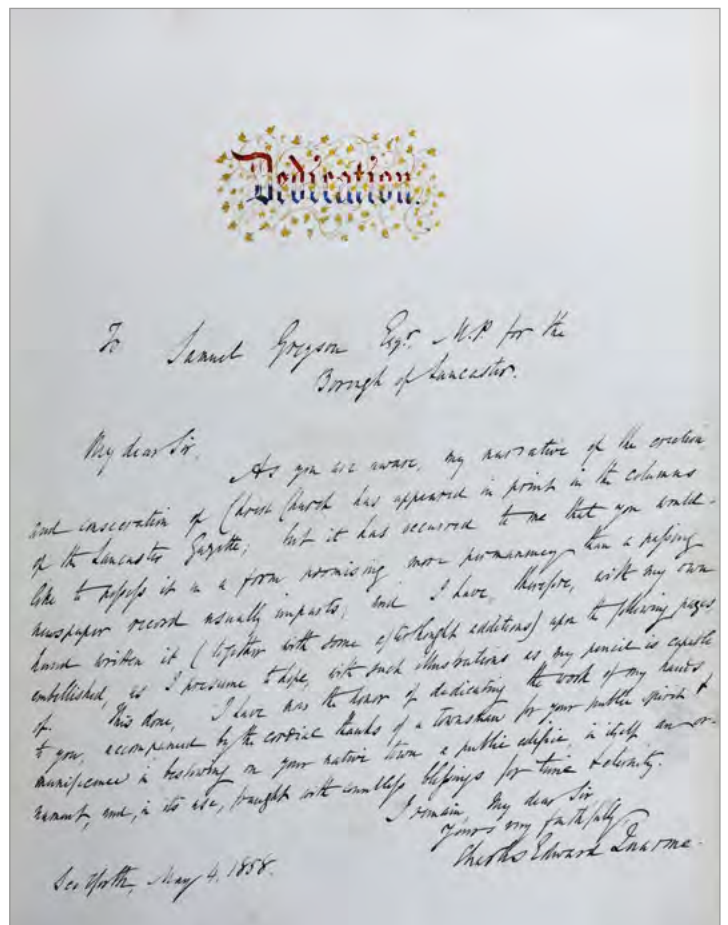 Dedication.
To Samuel Gregson Esqr. M.P. for the
Borough of Lancaster.
My dear Sir,
As you are aware, my narrative of the erection
and consecration of Christ Church has appeared in print in the columns
of the Lancaster Gazette; but it has occurred to me that you would
like to possess it in a form promising more permanency than a passing
newspaper record usually imparts; and I have, therefore, with my own
hand written it (together with some afterthought additions) upon the following pages,
embellished, as I presume to hope, with such illustrations as my pencil is capable
of. This done, I have now the honor of dedicating the work of my hands
to you, accompanied by the cordial thanks of a townsman for your public spirit &
munificence in bestowing on your native town a public edifice, in itself an or-
nament, and, in its use, fraught with countless blessings for time & eternity.
I remain, My dear Sir
Yours very faithfully
Edward
May 4. 1858.